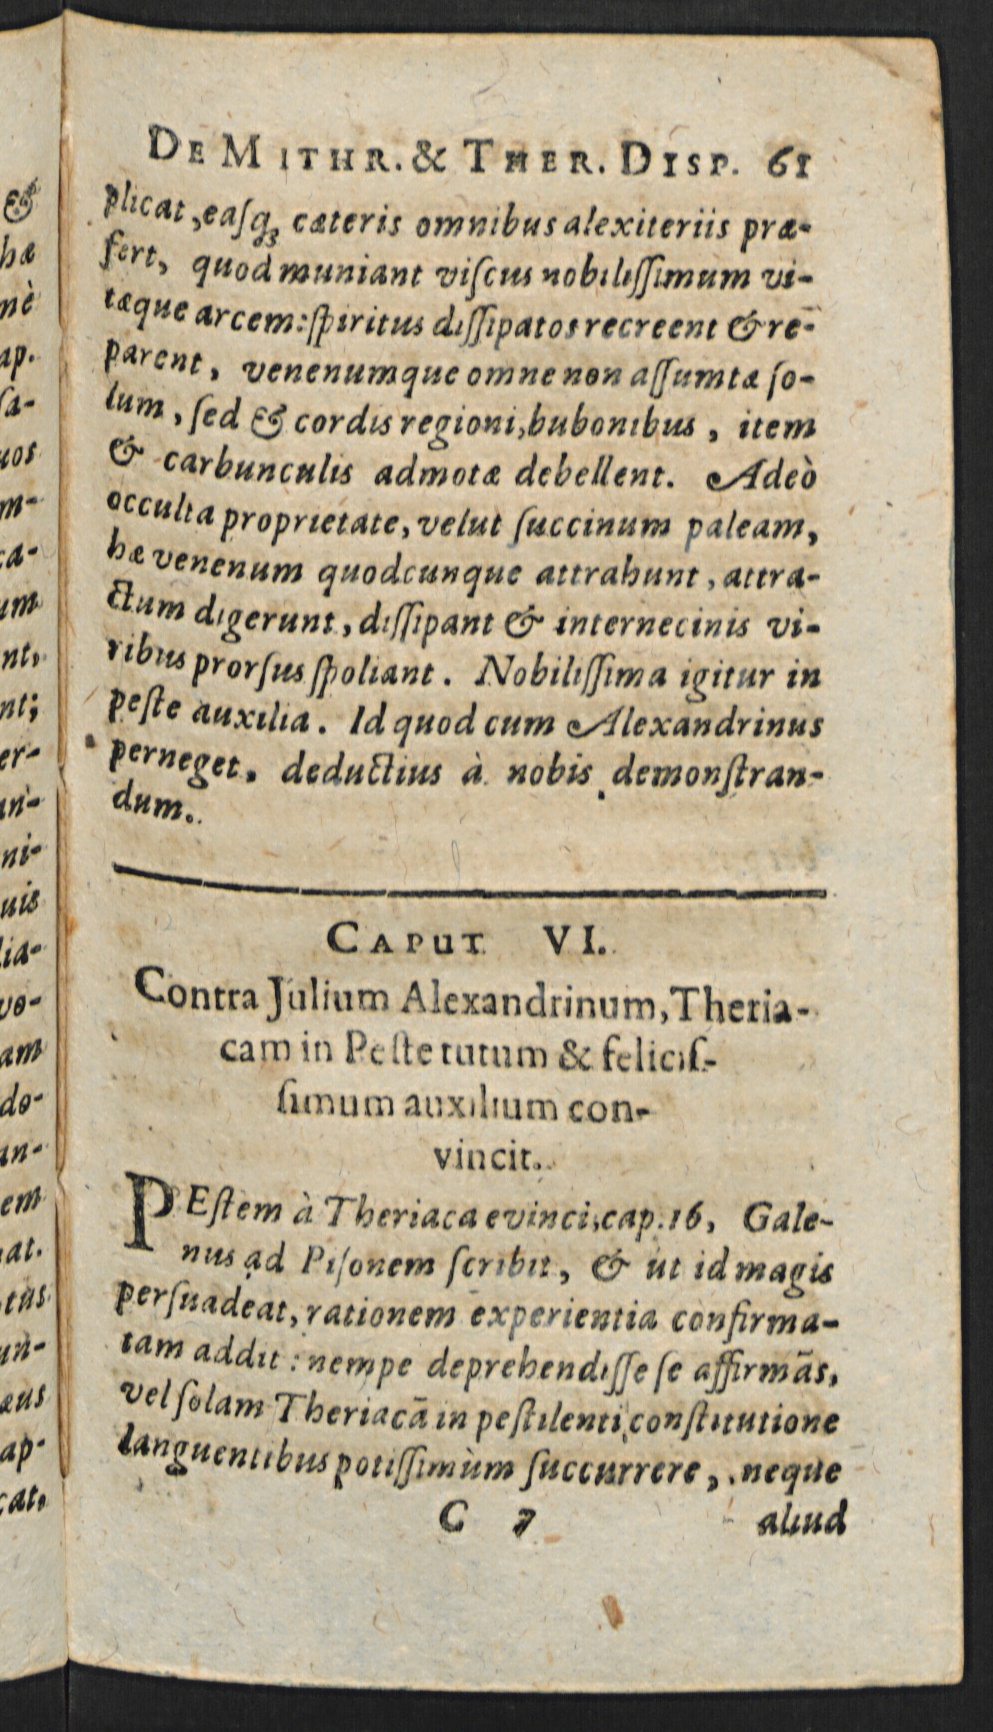 DE MITHR. & THER. DISP. 61
plicat, easqꝫ cæteris omnibus alexiteriis præ-
fert, quod muniant viſcus nobiliſſimum vi-
tæque arcem: ſpiritus diſſipatos recreent & re-
parent, venenumque omne non aſſumtæ ſo-
lum, ſed & cordis regioni, bubonibus, item
& carbunculis admotæ debellent. Adeò
occulta proprietate, velut ſuccinum paleam,
hæ venenum quodcunque attrahunt, attra-
ctum digerunt, diſſipant & internecinis vi-
ribus prorſus ſpoliant. Nobiliſſima igitur in
peſte auxilia. Id quod cum Alexandrinus
perneget, deductius à nobis demonſtran-
dum.
CAPUT VI.
Contra Julium Alexandrinum, Theria-
cam in Peſte tutum & feliciſ-
ſimum auxilium con-
vincit.
PEſtem à Theriaca evinci, cap. 16, Gale-
nus ad Piſonem ſcribit, & ut id magis
perſuadeat, rationem experientia confirma-
tam addit: nempe deprehendiſſe ſe affirmãs,
vel ſolam Theriacã in peſtilenti conſtitutione
languentibus potiſſimùm ſuccurrere, neque
C 7 aliud
&
hæ
nè
ap.
ſa-
uos
m-
ca-
um
nt,
nt;
er-
un-
ni-
uis
lia-
vo-
am
do-
an-
em
at.
tus
un-
æus
ap-
cat,